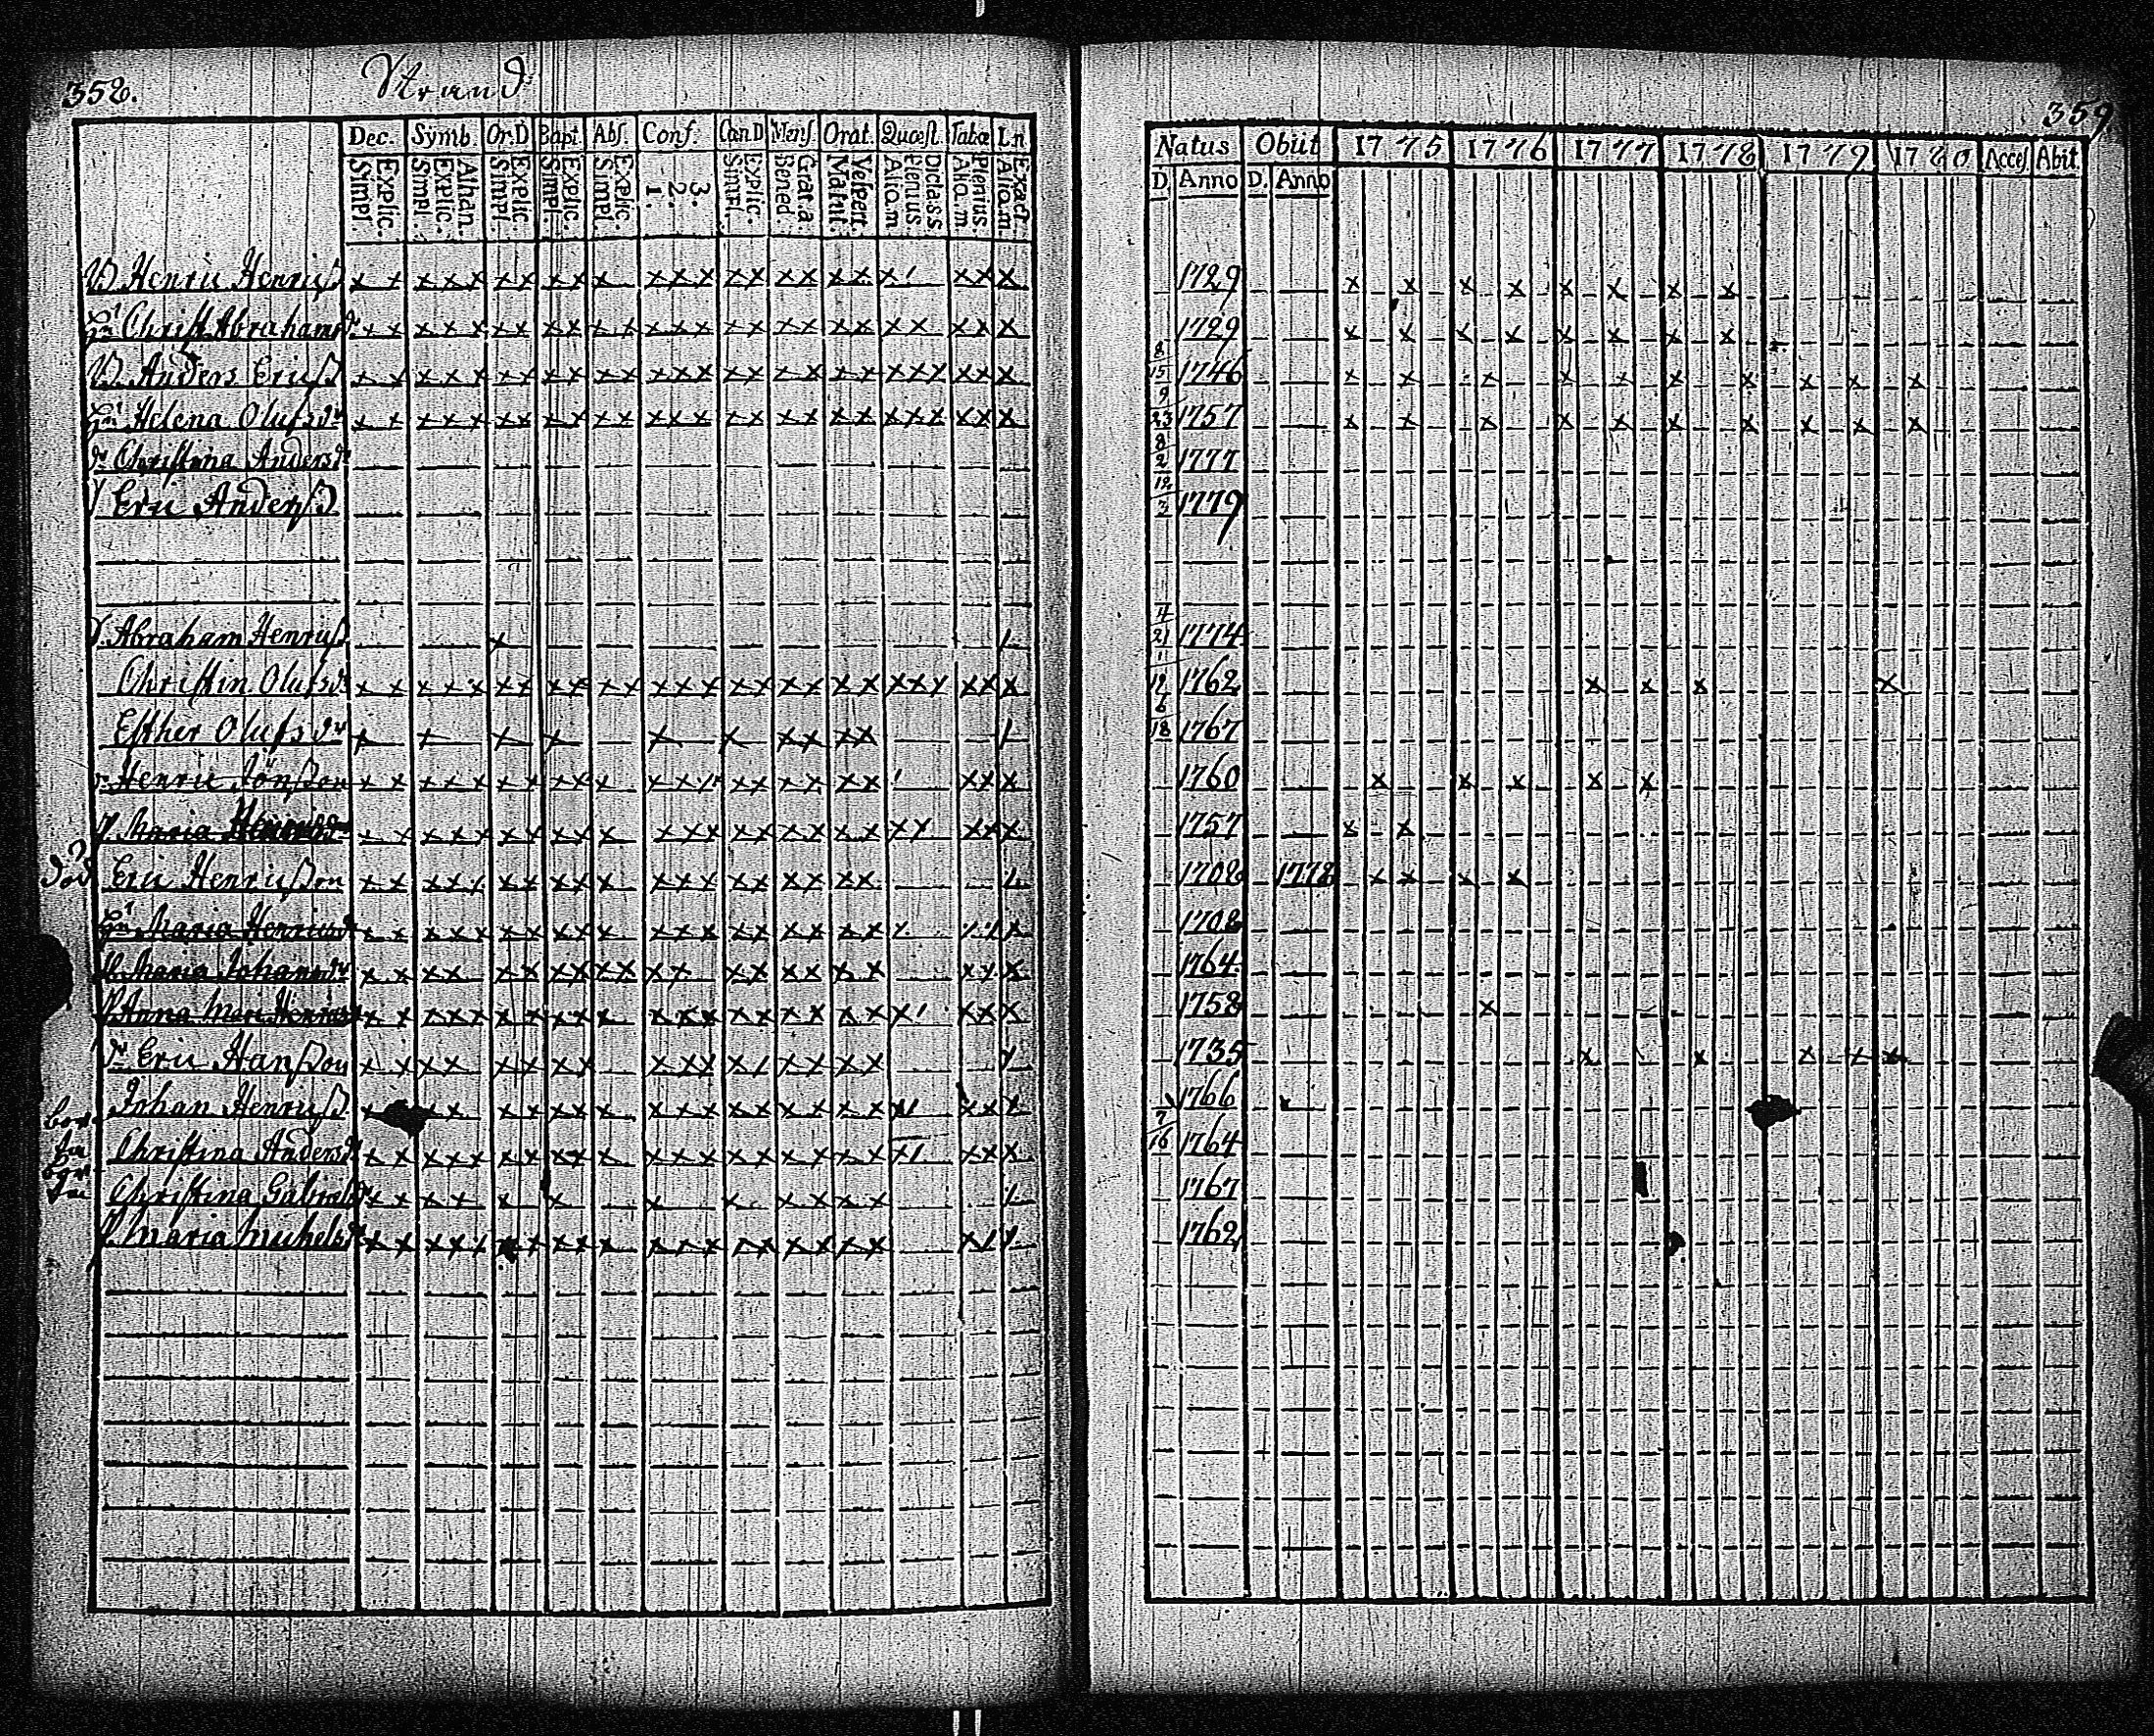 358.
Strand
Dec. Symb. Or.D Bapt Abs. Conf. CœnD Mens Orat. Quæst. Tabæ Ln
Simpl. Explic. Simpl. Explic. Athan. Simpl. Explic. Simpl. Explic. Simpl. Explic. 1. 2. 3. Simpl. Explic. Bened. Grat.a. Matut. Vespert. Alio.m Plenius Dicta.s.s Alio.m Plenius. Alio.m. Exact.
Henric Henriss x x x x x x x x x x x x x x x x x x x x ' x x x
Christ Abrahams dr x x x x x x x x x x x x x x x x x x x x x x x x
Anders Erics x x x x x x x x x x x x x x x x x x x x x x x x x
Helena Olufs dr x x x x x x x x x x x x x x x x x x x x x x x x x
dr Christina Anders dr
Eric Anders
Abraham Henrics x
Christin Olufs d x x x x x x x x x x x x x x x x x x x x x x x x x
Esther Olufs dr x x x x x x x x x x
Henric Jönsson x x x x x x x x x x x x x x x x x x ' x x x
Maria x x x x x x x x x x x x x x x x x x x x x x x
Död Eric Henricsson x x x x x x x x x x x x x x x x x x
Maria Henrics d x x x x x x x x x x x x x x x x x x
Maria Johans dr x x x x x x x x x x x x x x x x x x
Anna Mari Henrics x x x x x x x x x x x x x x x x x x x x x x
dr Eric Hansson x x x x x x x x x x x x x x x x
Johan Henrics x x x x x x x x x x x x x x x x x x
Christina Anders d x x x x x x x x x x x x x x x x x x
Christina Gabriels d x x x x x x x x x x x x
Maria Michels d x x x x x x x x x x x x x x x x x x
359
Natus Obiit 1775 1776 1777 1778 1779 1780 Acces Abit
D. Anno D. Anno
1729 x x x x x x x x
1729 x x x x x x x x
8/15 1746 x x x x x x x x x x
9/23 1757 x x x x x x x x x x
8/2 1777
12/3 1779
4/21 1774
11/12 1762 x x x x
6/18 1767
1760 x x x x x
1757 x x
1708 1778 x x x x
1708
1764
1758 x
1735 x x x x x
1766
7/16 1764
1767
1762